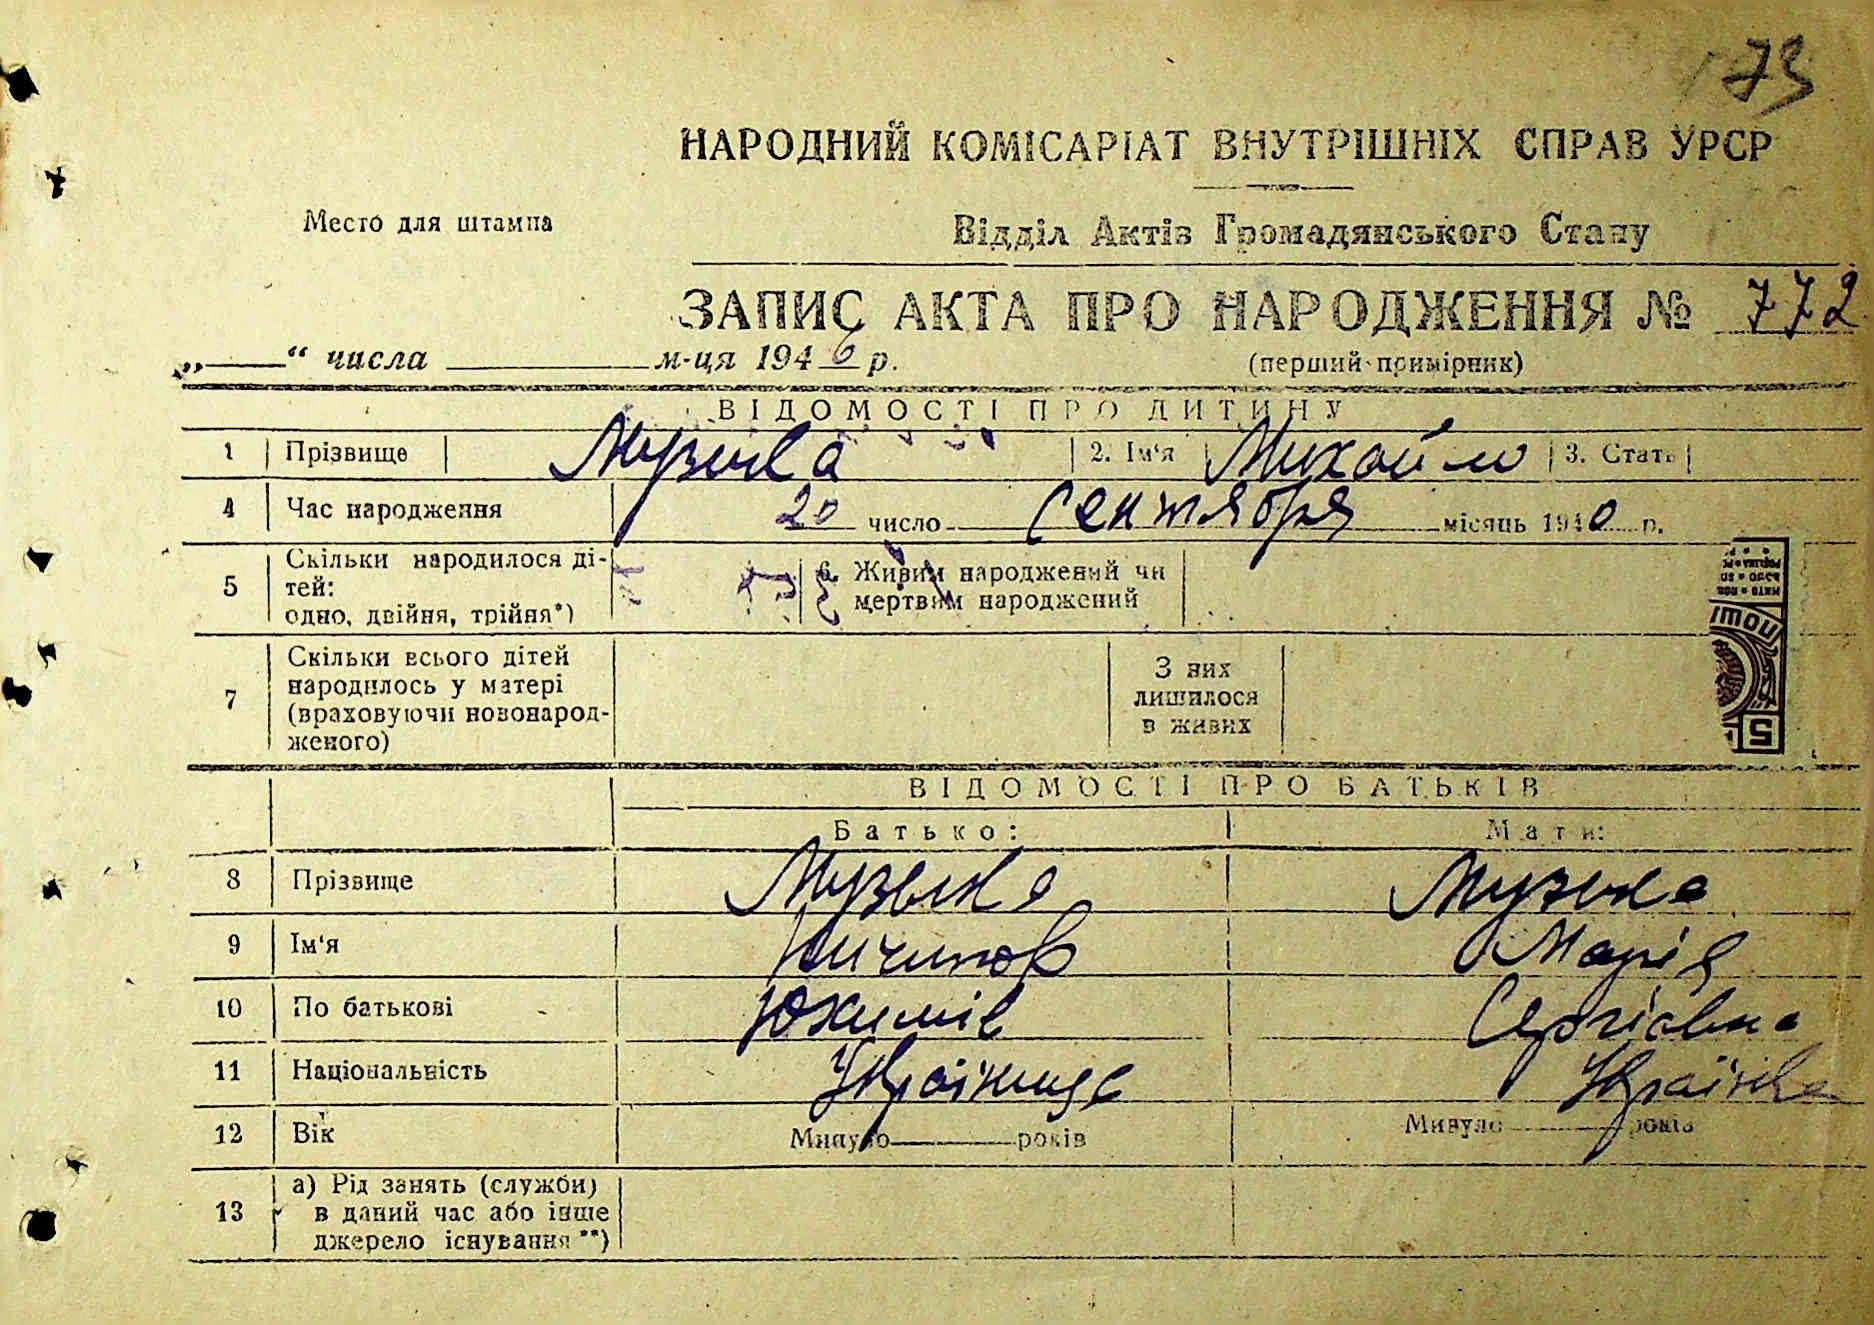 73
НАРОДНИЙ КОМІСАРІАТ ВНУТРІШНІХ СПРАВ УРСР
Место для штампа
Відділ Актів Громадянського Стану
ЗАПИС АКТА ПРО НАРОДЖЕННЯ № 772
„ “ числа м-ця 1946 р. (перший примірник)
ВІДОМОСТІ ПРО ДИТИНУ
1 Прізвище Музика 2. Ім'я Михайло 3. Стать
4 Час народження 20 число Сентября місяць 1940 р.
5 Скільки народилося ді-
тей:
одно, двійня, трійня*)
6. Живим народжений чи
мертвим народжений
7 Скільки всього дітей
народилось у матері
(враховуючи новонарод-
женого)
З них
лишилося
в живих
5
ВІДОМОСТІ ПРО БАТЬКІВ
Батько: Мати:
8 Прізвище Музыка Музыка
9 Ім'я Ничипор Марія
10 По батькові Юхимів Сергіівна
11 Національність Українець Українка
12 Вік Минуло років Минуло років
13 а) Рід занять (служби)
в даний час або інше
джерело існування**)